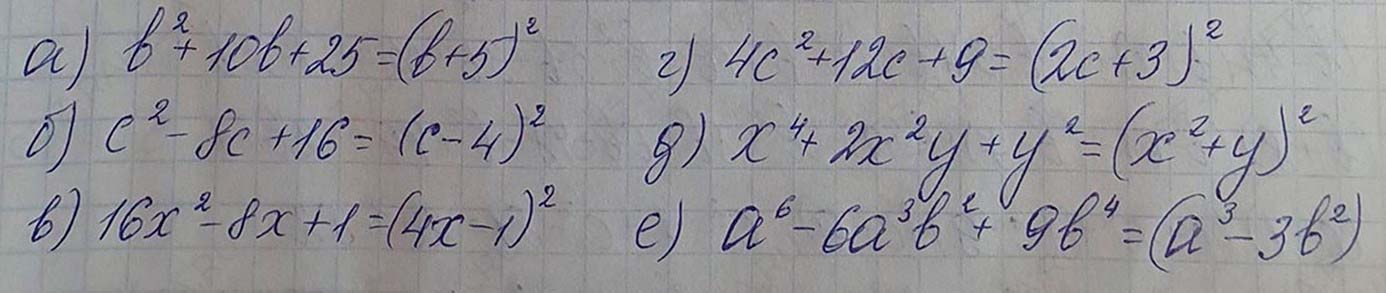 а) b²+10b+25=(b+5)²
б) c²-8c+16=(c-4)²
в) 16x²-8x+1=(4x-1)²
г) 4c²+12c+9=(2c+3)²
д) x⁴+2x²y+y²=(x²+y)²
е) a⁶-6a³b²+9b⁴=(a³-3b²)